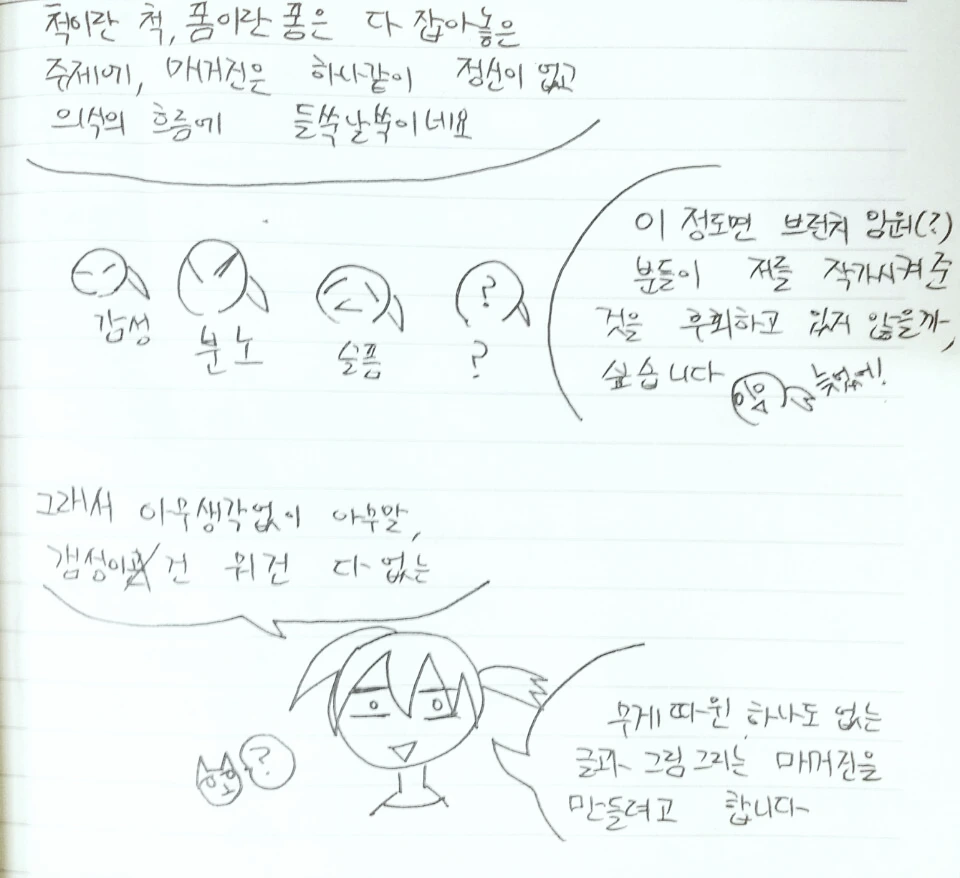 척이란 척, 폼이란 폼은 다 잡아놓은
주제에, 매거진은 하나같이 정신이 없고
의식의 흐름에 들쑥날쑥이네요
이 정도면 브런치 임원(?)
분들이 저를 작가시켜준
것을 후회하고 있지 않을까,
싶습니다
늦었어!
감성
분노
슬픔
?
?
그래서 아무생각없이 아무말,
갬성이 건 뭐건 다 없는
무게 따윈 하나도 없는
글과 그림 그리는 매거진을
만들려고 합니다
?